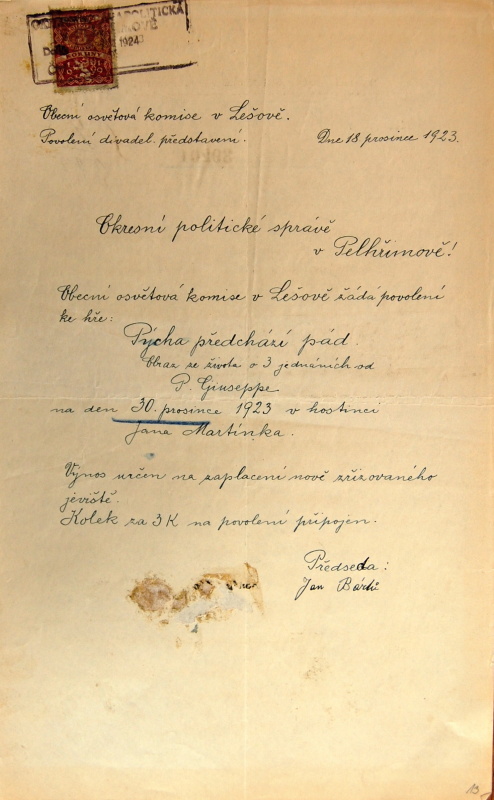 POLITICKÁ
1924
Obecní osvětová komise v Lešově.
Povolení divadel. představení. Dne 18 prosince 1923.
Okresní politické správě
v Pelhřimově!
Obecní osvětová komise v Lešově žádá povolení
ke hře:
Pýcha předchází pád.
Obraz ze života o 3 jednáních od
P. Giuseppe
na den 30. prosince 1923 v hostinci
Jana Martínka.
Výnos určen na zaplacení nově zřizovaného
jeviště.
Kolek za 3 K na povolení připojen.
Předseda:
Jan Bárků
13